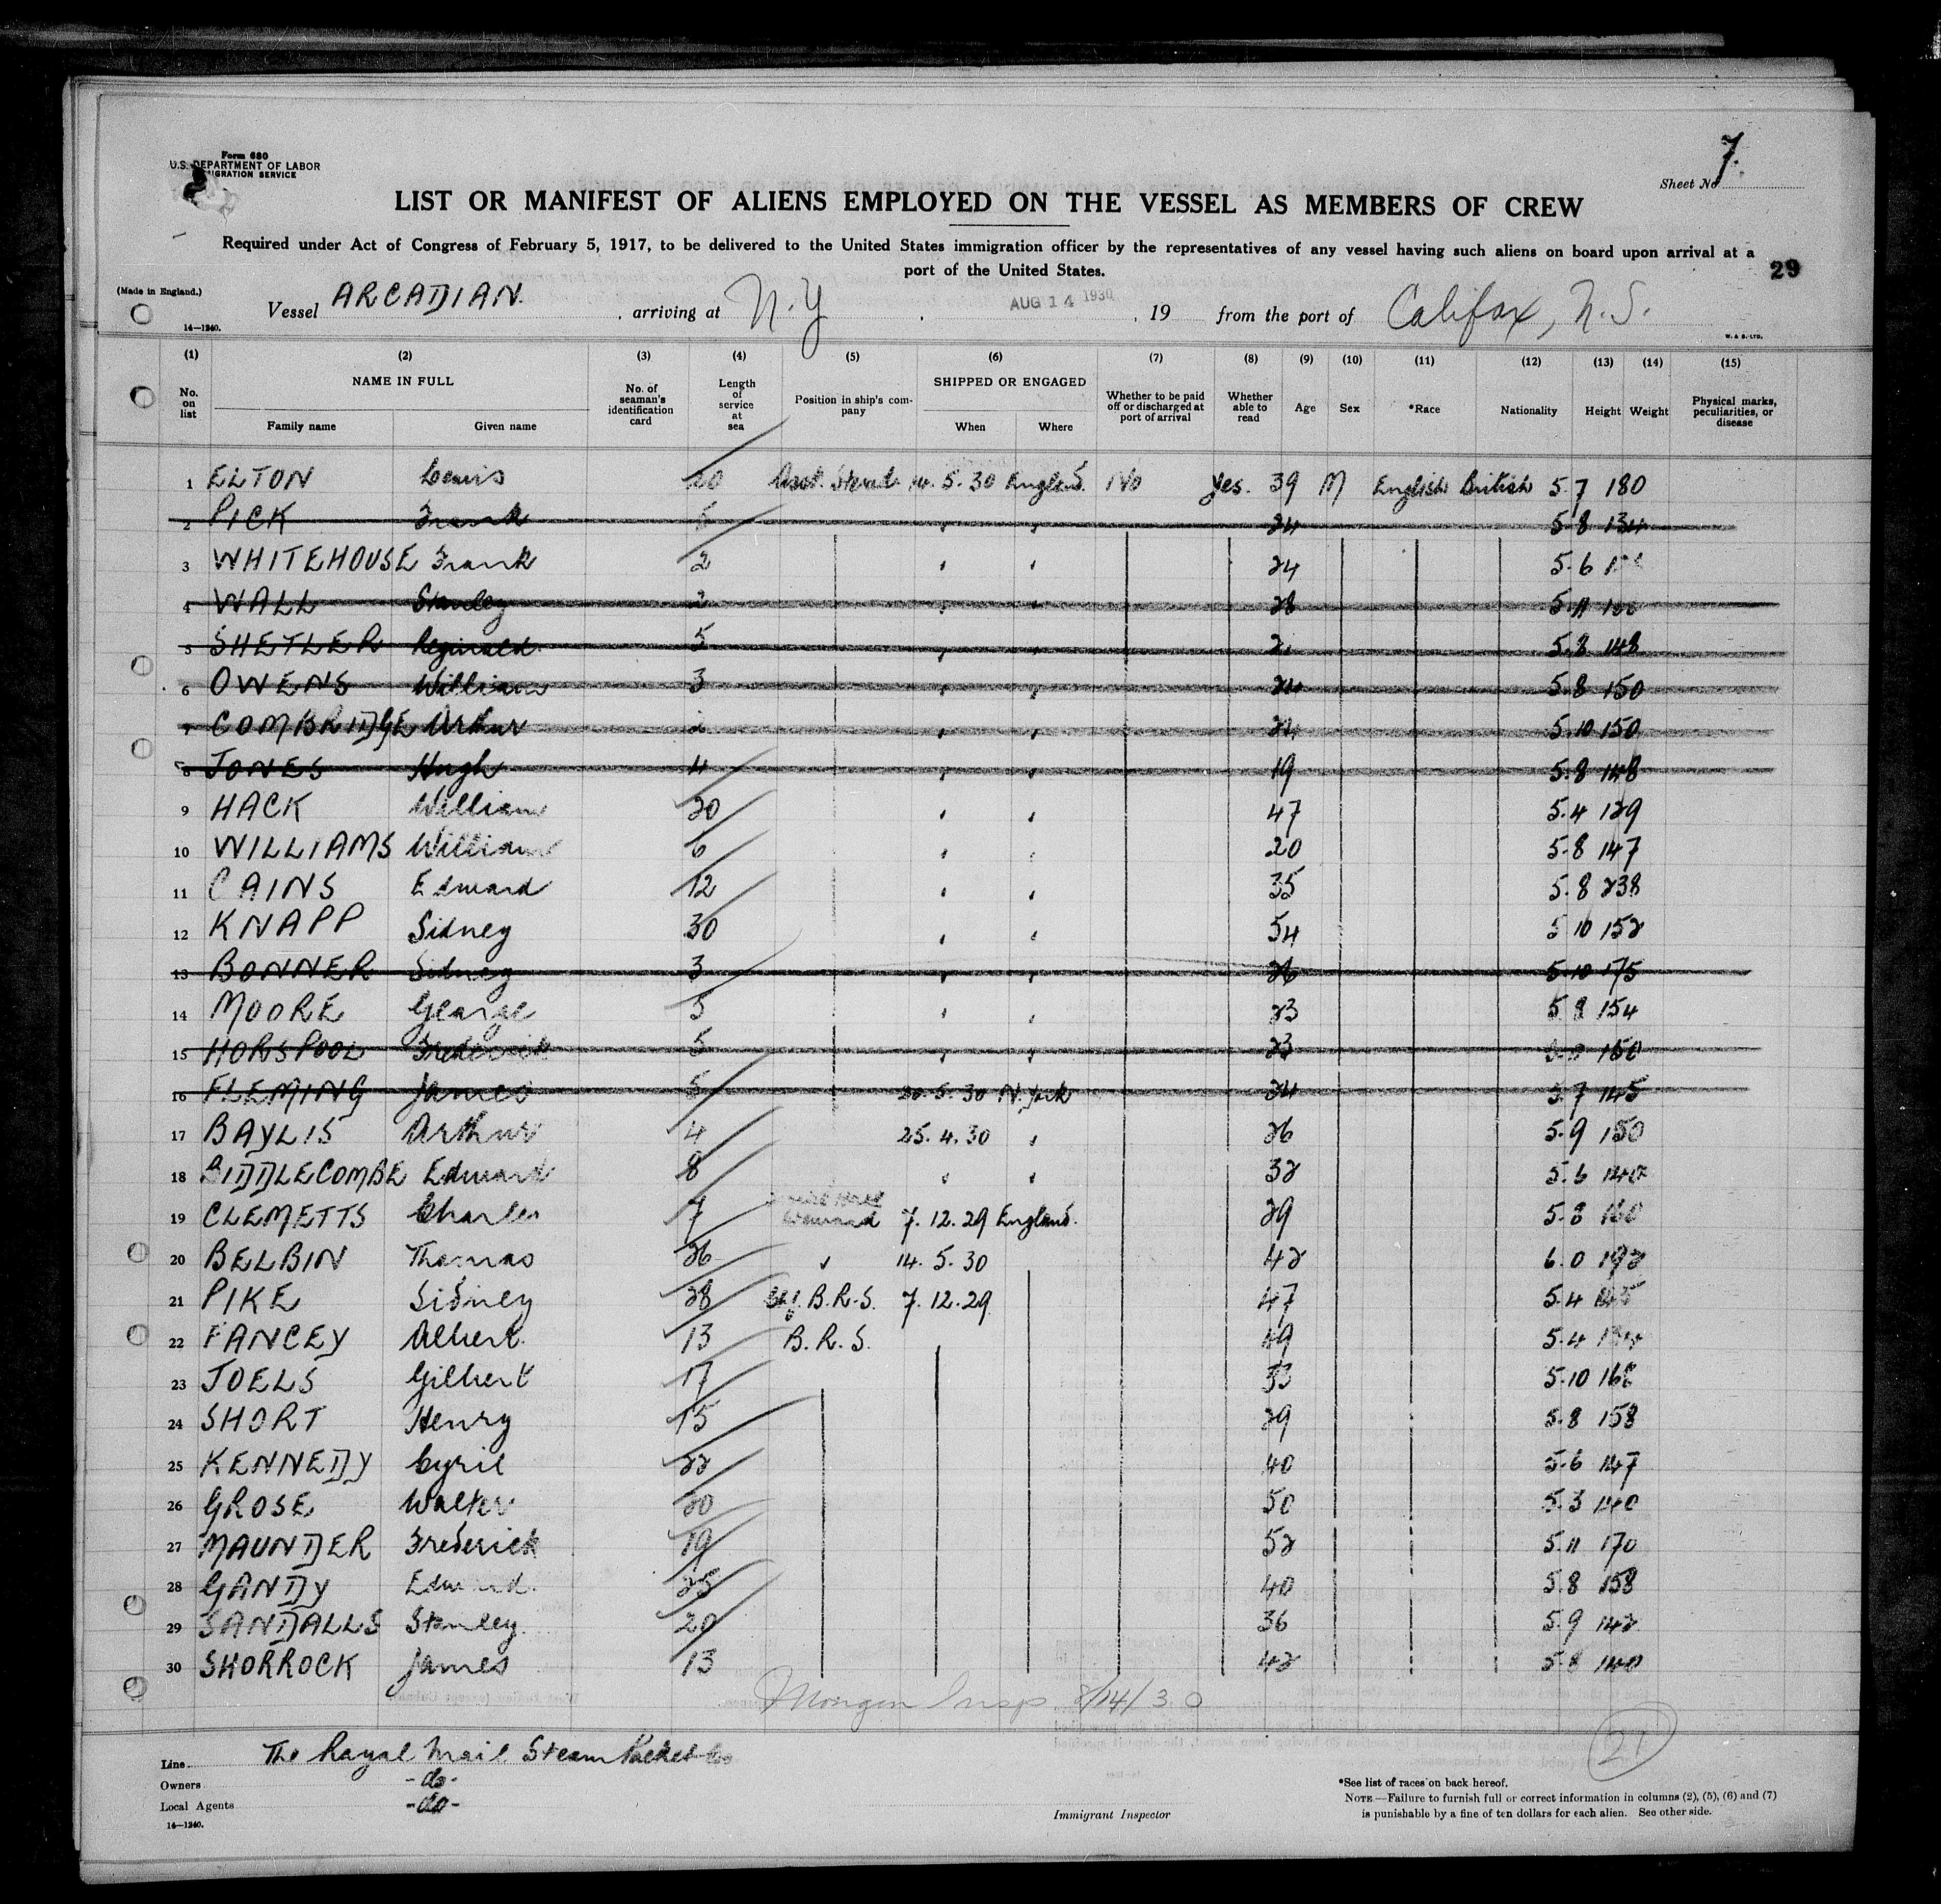 Form 680
U.S. DEPARTMENT OF LABOR
IMMIGRATION SERVICE
Sheet No. 7.
LIST OR MANIFEST OF ALIENS EMPLOYED ON THE VESSEL AS MEMBERS OF CREW
Required under Act of Congress of February 5, 1917, to be delivered to the United States immigration officer by the representatives of any vessel having such aliens on board upon arrival at a
port of the United States.
29
(Made in England.)
Vessel ARCADIAN. , arriving at N.Y. AUG 14 1930 , 19 from the port of Califax, N.S.
14—1240.
W. & S. LTD.
(1) (2) (3) (4) (5) (6) (7) (8) (9) (10) (11) (12) (13) (14) (15)
No. on list NAME IN FULL Family name Given name No. of seaman's identification card Length of service at sea Position in ship's company SHIPPED OR ENGAGED When Where Whether to be paid off or discharged at port of arrival Whether able to read Age Sex *Race Nationality Height Weight Physical marks, peculiarities, or disease
1 ELTON Lewis 20 Asst. Steward 14.5.30 England. No Yes. 39 M English British 5.7 180
2 PICK Frank 24 5.8 134
3 WHITEHOUSE Frank 2 24 5.6
4 WALL Stanley 2 28 5.11
5 SHETLER Reginald 5 5.8 148
6 OWENS William 3 24 5.8 150
7 COMBRIDGE Arthur 24 5.10 150
8 JONES Hugh 4 19 5.8 148
9 HACK William 20 47 5.4 129
10 WILLIAMS William 6 20 5.8 147
11 CAINS Edward 12 35 5.8 238
12 KNAPP Sidney 30 54 5 10 152
13 BONNER Sidney 3 26 5.10 175
14 MOORE George 5 23 5.8 154
15 HORSPOOL Frederick 5 23 150
16 FLEMING James 5 20.5.30 N. York 24 5.7 145
17 BAYLIS Arthur 4 25.4.30 26 5.9 150
18 BIDDLECOMBE Edward 8 32 5.6 140
19 CLEMETTS Charles 7 7.12.29 England. 29 5.8 160
20 BELBIN Thomas 26 14.5.30 42 6.0 192
21 PIKE Sidney 28 B.R.S. 7.12.29 47 5.4
22 FANCEY Albert 13 B.R.S. 49 5.4
23 JOELS Gilbert 17 33 5.10 168
24 SHORT Henry 15 29 5.8 158
25 KENNEDY Cyril 22 40 5.6 147
26 GROSE Walter 20 50 5.3 140
27 MAUNDER Frederick 19 52 5.11 170
28 GANDY Edward 25 40 5.8 158
29 SANDALLS Stanley 20 36 5.9 142
30 SHORROCK James 13 42 5.8 140
Insp 8/14/30
21
Line The Royal Mail Steam Packet Co
Owners -do-
Local Agents -do-
14—1240.
Immigrant Inspector
*See list of races on back hereof.
NOTE.—Failure to furnish full or correct information in columns (2), (5), (6) and (7)
is punishable by a fine of ten dollars for each alien. See other side.